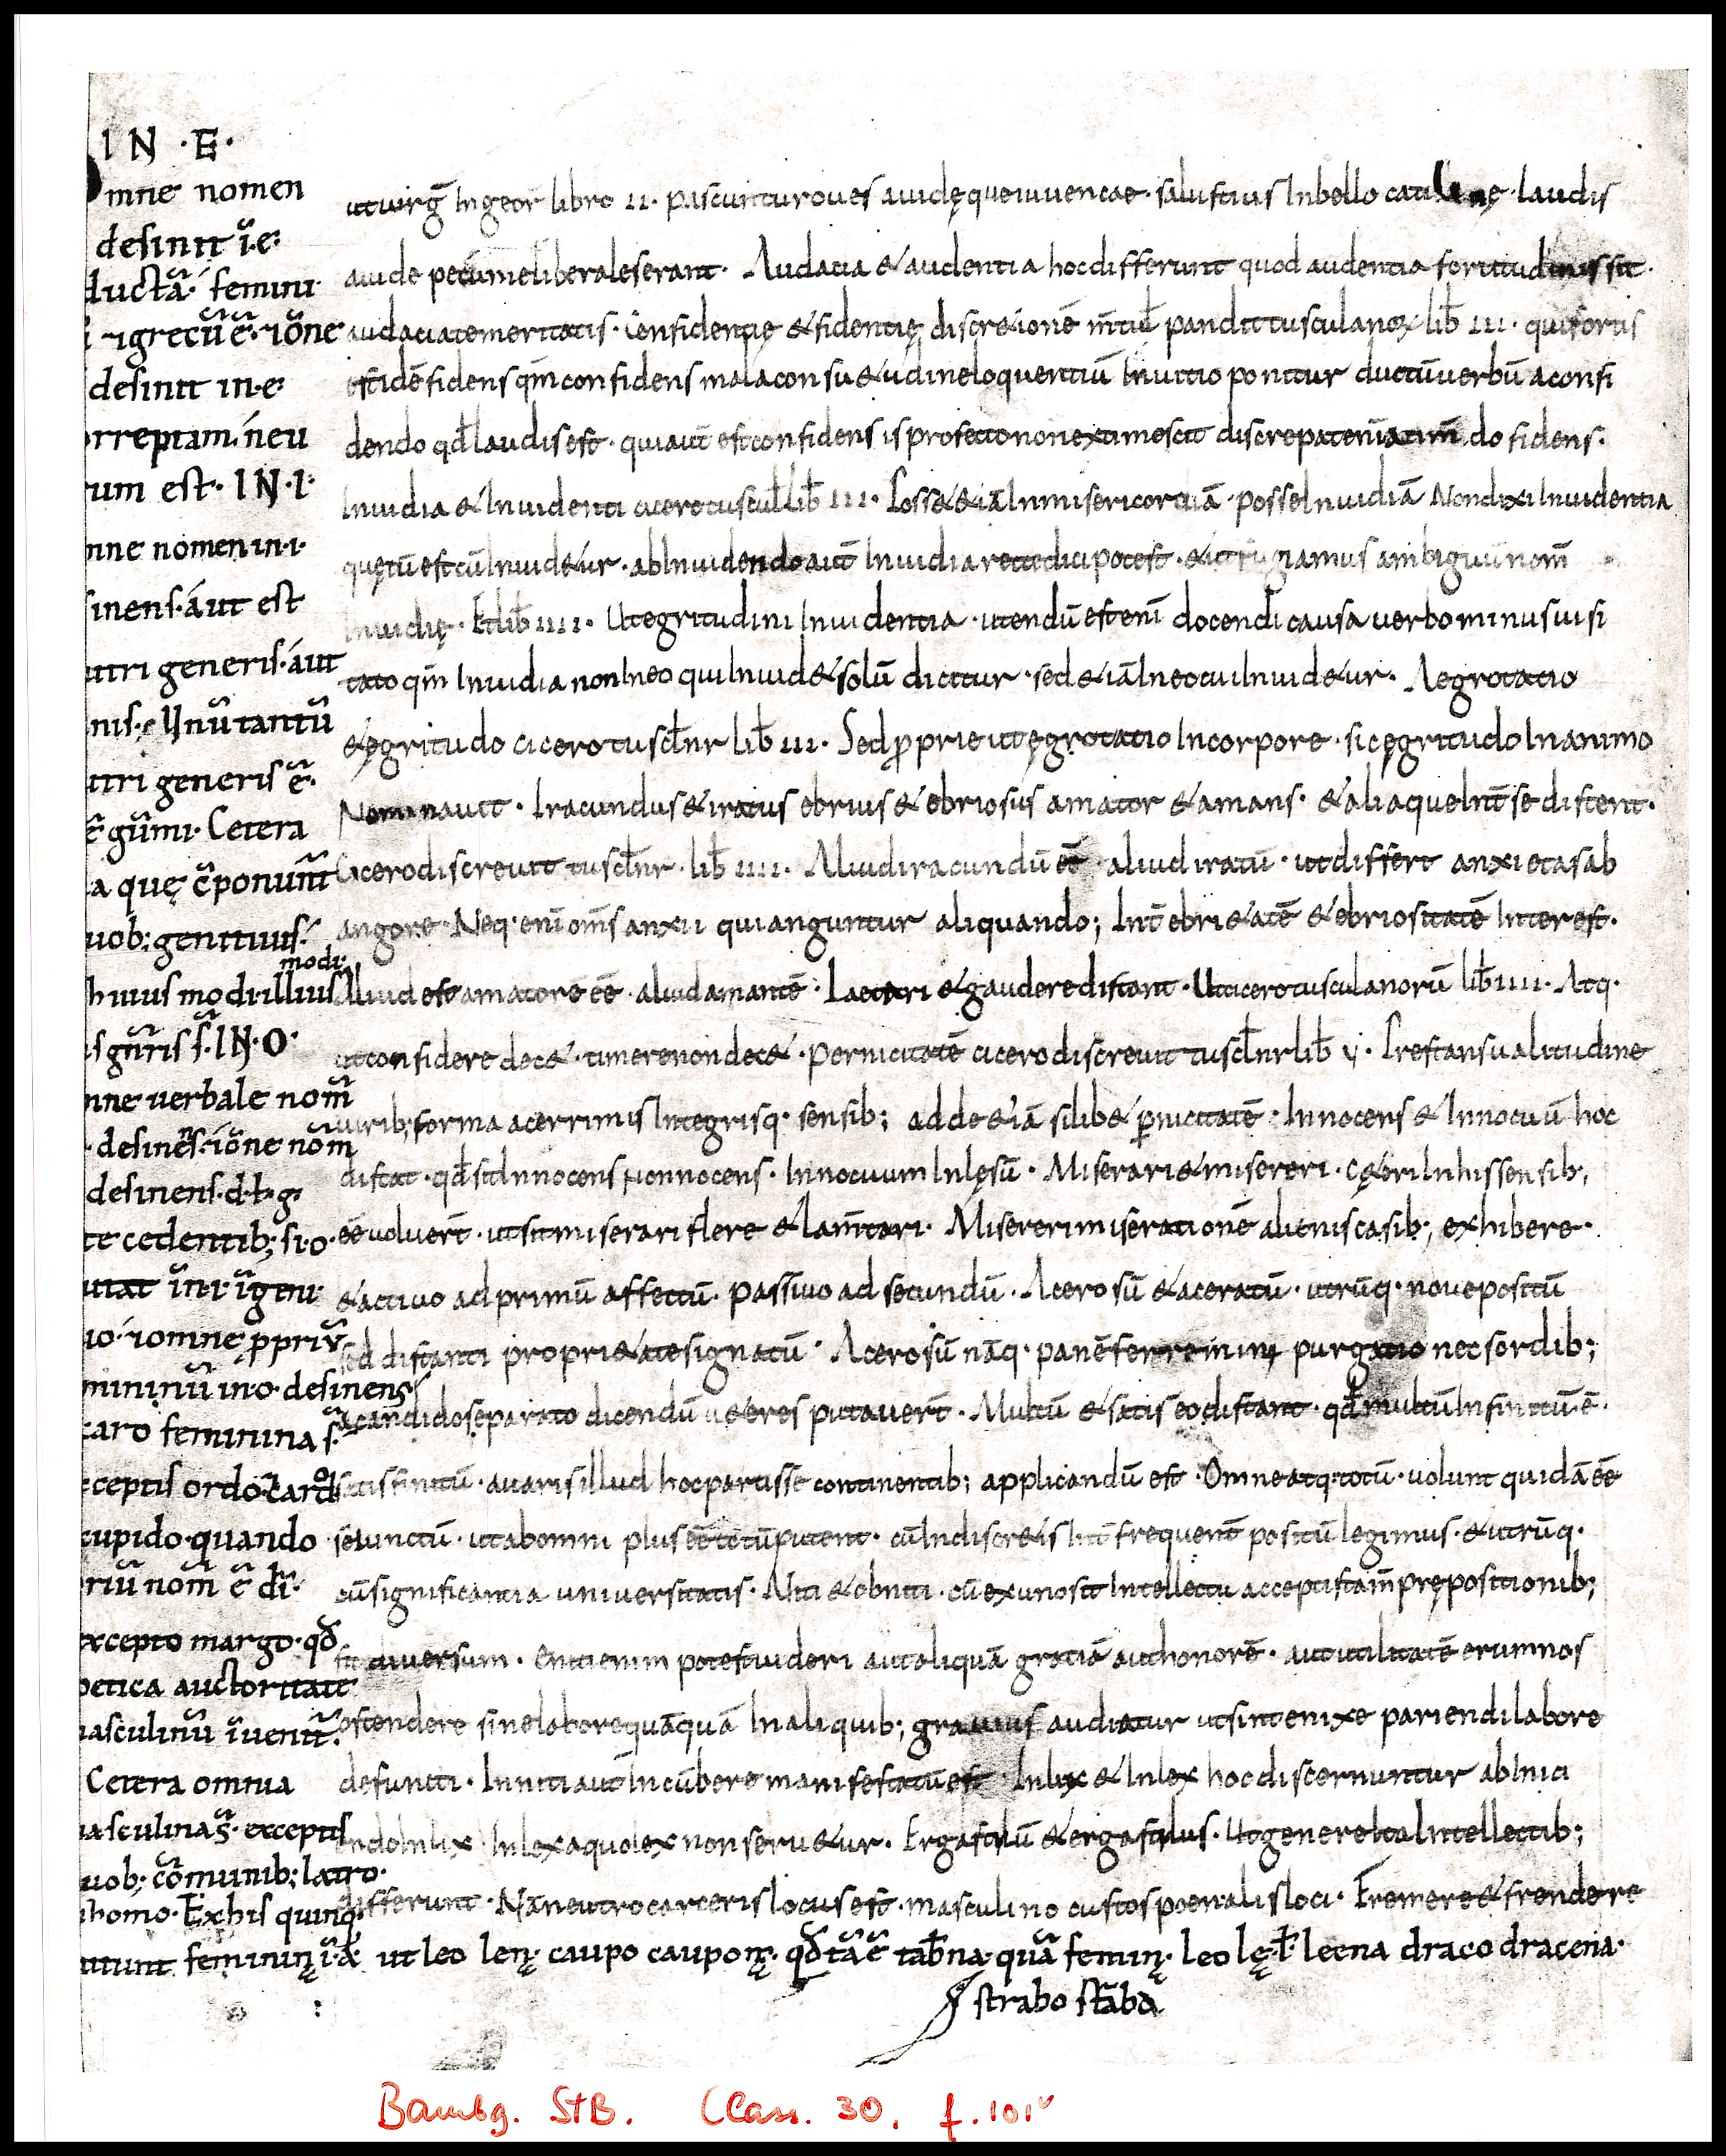 IN ·E·
mne nomen
desinit ĩ·e·
ductã· femini
ꝛ grecũ ẽ· iõne
desinit in·e·
orreptam· neu
rum est· IN·I·
mne nomen in·i·
sinens· aut est
utri generis· aut
nis· tantũ
utri generis ẽ·
ẽ gũmi· Cetera
a quę cõponunt̃
uob; genitiuus·
modi·
huius modi· illius
is gñris s̃· IN·O·
mne uerbale nom̃
desinẽs· iõne nõm
desinens· d·t·g·
te cedentib; si·o·
utat in·i· ĩ geni
uo· omne ppriũ
mininũ in·o· desinens
caro feminina s̃·
ceptis ordo· cardo
cupido· quando
riũ nom̃ ẽ dĩ·
excepto margo· qđ
oetica auctoritate
masculinũ ĩuenit̃·
Cetera omnia
masculina s̃· exceptis
uob; cõmunib; latro·
homo· Ex his quinq·
utuirg̃ In geor̃ libro II· pascuntur oues auidęque iuuencae· salustius In bello catilinę· laudis
auide pecunie liberales erant· Audacia & audentia hoc differunt quod audentia fortitudinis sit·
audacia temeritatis· Confidentię & fidentię discretionẽ m̃ tul̃ pandit tusculanoꝝ lib̃ III· qui fortis
est idẽ fidens qm̃ confidens mala consu&udine loquentiũ In uitio ponitur ductũ uerbũ a confi
dendo qđ laudis est· qui aut̃ est confidens is profecto non extimescit discrepat eni a tim̃do fidens·
Inuidia & Inuidenti cicero tuscul̃ lib̃ III· Posse &iã In misericordiã· posse Inuidiã Non dixi Inuidentia
quę tũ est cũ Inuid&ur· ab Inuidendo aut̃ Inuidia recte dici potest· ut fugiamus ambiguũ nom̃
Inuidię· Et lib̃ IIII· Ut egritudini Inuidentia· utendũ est enĩ docendi causa uerbo minus uisi
tato qm̃ Inuidia non In eo qui Inuid& solũ dicitur· sed &iã In eo cui Inuid&ur· Aegrotatio
& ęgritudo cicero tuscl̃nr lib̃ III· Sed ꝓprie ut ęgrotatio In corpore· sic ęgritudo In animo
Nominauit· Iracundus & iratus ebrius & ebriosus amator & amans· & alia que Int̃ se distent·
Cicero discreuit tuscl̃nr· lib̃ IIII· Aliud iracundũ eẽ· aliud iratũ· ut differt anxietas ab
angore· Neq· enĩ om̃s anxii qui anguntur aliquando; Int̃ ebri&atẽ & ebriositatẽ Interest·
Aliud est amatorẽ eẽ· aliud amantẽ· Laetari & gaudere distant· Ut cicero tusculanorũ lib̃ IIII· Atq·
ut confidere dec&· timere non dec&· Pernicitatẽ cicero discreuit tuscl̃nr lib̃ V· Prestans ualitudine
uirib; forma acerrimis Integrisq· sensib; adde &iã si lib& ꝑnicitatẽ· Innocens & Innocuũ hoc
distat· qđ sit Innocens Non nocens· Innocuum Inlęsũ· Miserari & misereri· c&eri In his sensib;
eẽ uoluer̃t· ut sit miserari flere & lam̃tari· Misereri miserationẽ alienis casib; exhibere·
& actiuo ad primũ affectũ· passiuo ad secundũ· Acerosũ & aceratũ· utrũq· noue positũ
sed distanti propri&ate signatũ· Acerosũ nãq· panẽ purgatio nec sordib;
a candido separato dicendũ u&eres putauer̃t· Multũ & satis eo distant· qđ multũ Infinitũ ẽ·
satis finitũ· auaris illud hoc partisse continentib; applicandũ est· Omne atq· totũ· uolunt quidã eẽ
seiunctũ· ut ab omni plus eẽ totũ putent· cũ Indiscr&is Int̃ frequent̃ positũ legimus· & utrũq·
cũ significantia uniuersitatis· Niti & obniti· cũ ex uno sit Intellectu accepti stam̃ prępositionib;
fit diuersum· Eniti enim potest uideri aut aliquã gratiã aut honorẽ· aut utilitatẽ erumnos
ostendere sine labore quãquã In aliquib; grauius audiatur ut sint enixe pariendi labore
defuncti· Inniti aut̃ Incũbere manifestatũ est· Inlix & Inlex hoc discernuntur ab Inlici
endo Inlix· Inlex a quo lex non seru&ur· Ergastulũ & ergastulus· Ut genere ita Intellectib;
differunt· Nã neutro carceris locus est· masculino custos poenalis loci· Fremere & frendere
utunt femininę ĩ·a· ut leo lenę· caupo cauponę· qđ tã ẽ tab̃na· quã femin̨· leo lę·l̃· leena draco dracena·
strabo strãba
Bambg. StB. Class. 30, f. 101ᵛ